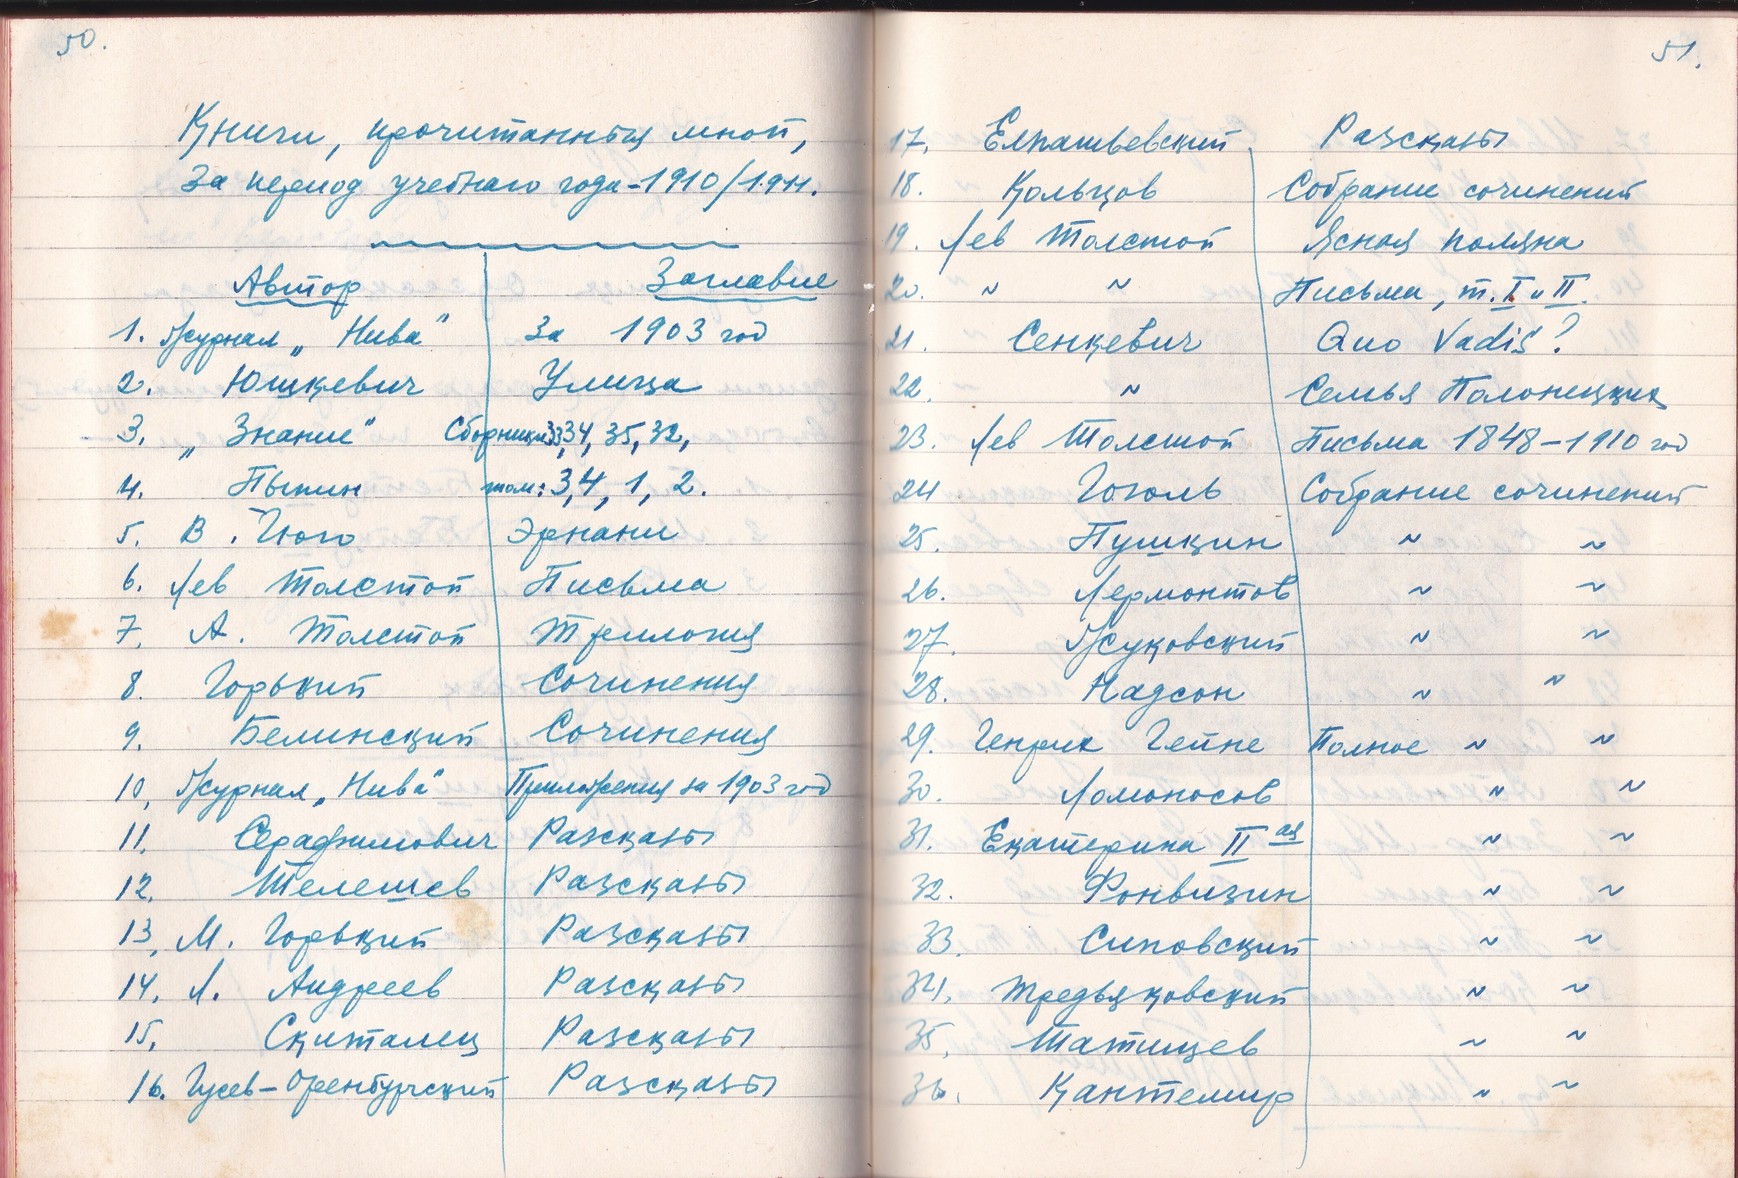 50.
Книги, прочитанныя мной,
За период учебнаго года-1910/1911.
Автор Заглавие
1. Журнал „Нива“ За 1903 год
2. Юшкевич Улица
3. „Знание“ Сборники 33, 34, 35, 32,
4. Пыпин том: 3, 4, 1, 2.
5. В. Гюго Эрнани
6. Лев Толстой Письма
7. А. Толстой Трилогия
8. Горький Сочинения
9. Белинский Сочинения
10. Журнал „Нива“ Приложения за 1903 год
11. Серафимович Разсказы
12. Телешев Разсказы
13. М. Горький Разсказы
14. Л. Андреев Разсказы
15. Скиталец Разсказы
16. Гусев-Оренбургский Разсказы
51.
17. Елпатьевский Разсказы
18. Кольцов Собрание сочинений
19. Лев Толстой Ясная поляна
20. ~ ~ Письма, т. I и II.
21. Сенкевич Quo Vadis?
22. ~ Семья Полонецких
23. Лев Толстой Письма 1848-1910 год
24 Гоголь Собрание сочинений
25. Пушкин ~ ~
26. Лермонтов ~ ~
27. Жуковский ~ ~
28. Надсон ~ ~
29. Генрик Гейне Полное ~ ~
30. Ломоносов ~ ~
31. Екатерина II ая ~ ~
32. Фонвизин ~ ~
33. Сиповский ~ ~
34. Тредьяковский ~ ~
35. Татищев ~ ~
36. Кантемир ~ ~